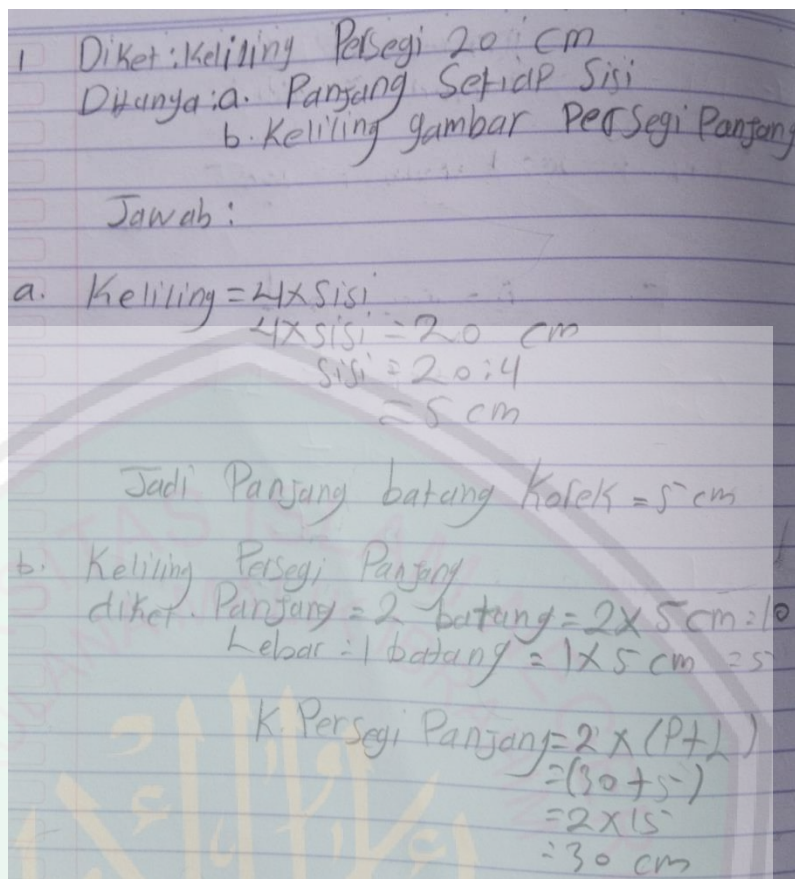 1 Diket : Keliling Persegi 20 cm
Ditanya : a. Panjang Setiap Sisi
b. Keliling gambar Persegi Panjang
Jawab :
a. Keliling = 4 x Sisi
4 x sisi = 20 cm
sisi = 20 : 4
= 5 cm
Jadi Panjang batang Korek = 5 cm
b. Keliling Persegi Panjang
diket. Panjang = 2 batang = 2 x 5 cm = 10
Lebar = 1 batang = 1 x 5 cm = 5
K. Persegi Panjang = 2 x (P + L)
= (30 + 5)
= 2 x 15
= 30 cm